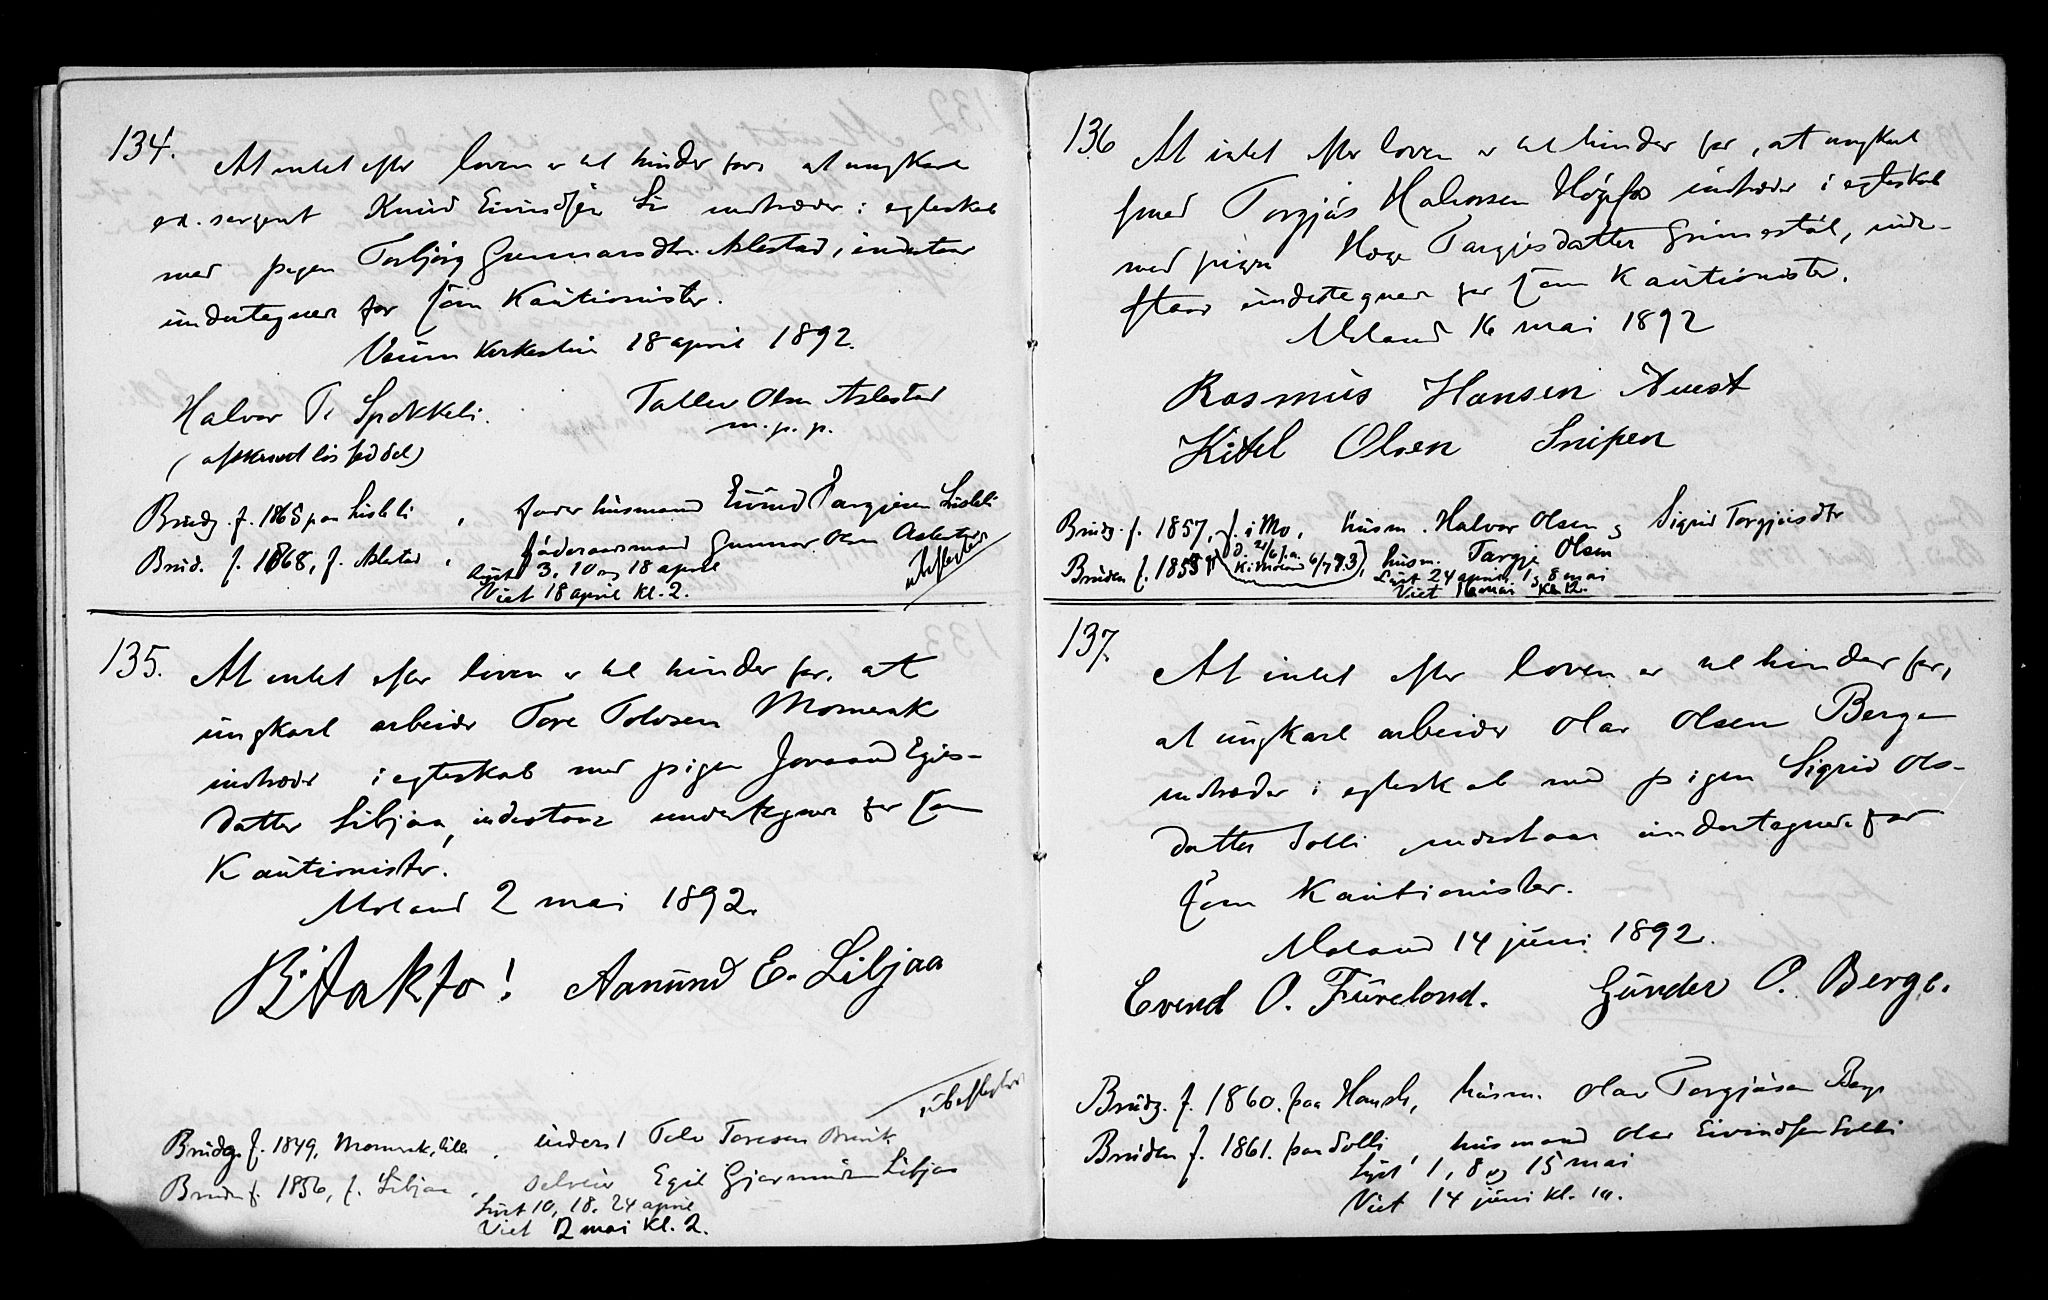 134.
At intet efter loven er til hinder for, at ungkarl
ex. sergent Knud Eivindsen Li indtræder i egteskab
med pigen Torbjørg Gunnarsdtr. Aslestad, indestaar
undertegnede for som Kautionister.
Veum Kirkesten 18 april 1892.
Halvor T. Spokkeli. Tallev Olsen Aslestad
m. p. p.
Brudg. f. 1865 paa Lisleli, fader husmand Eivind Targiesen Lisleli
Brud. f. 1868, f. Aslestad, føderaadsmand Gunnar Olsen Aslestad
Lyst 3, 10 og 18 april
Viet 18 april kl. 2.
ubefæstet
135.
At intet efter loven er til hinder for, at
ungkarl arbeider Tore Tolvsen Momrak
indtræder i egteskab med pigen Joraand Egils-
datter Libjaa, indestaar undertegnede for som
Kautionister.
Moland 2 mai 1892.
B. Aakto! Aamund E. Libjaa
ubefæstet
Brudg. f. 1849, Momrak, lille, inderst Tolv Toresen
Bruden f. 1856, f. Libjaa, selveier Egil Gjermundsen Libjaa
Lyst 10, 18, 24 april
Viet 2 mai kl. 2.
136
At intet efter loven er til hinder for, at ungkarl
smed Torgjus Halvorsen Høgefos indtræder i egteskab
med pigen Hæge Targjesdatter Grimestøl, inde-
staar undertegnede for som Kautionister.
Moland 16 mai 1892
Rasmus Hansen Kvest
Kitel Olsen Snipen
Brudg. f. 1857, f. i Mo, husm. Halvor Olsen og Sigrid Torgjusdtr
Bruden f. 1853, husm. Targje Olsen
Lyst 24 april, 1 og 8 mai
Viet 16 mai kl. 12.
137.
At intet efter loven er til hinder for,
at ungkarl arbeider Olav Olsen Berge
indtræder i egteskab med pigen Sigrid Ols-
datter Solli indestaar undertegnede for
som Kautionister.
Moland 14 juni 1892.
Evend O. Furelond. Gunder O. Berge.
Brudg. f. 1860. paa Hauch, husm. Olav Torgjusen Berge
Bruden f. 1861. paa Solli, husmand Olav Eivindsen Solli
Lyst 1, 8 og 15 mai
Viet 14 juni kl. 10.